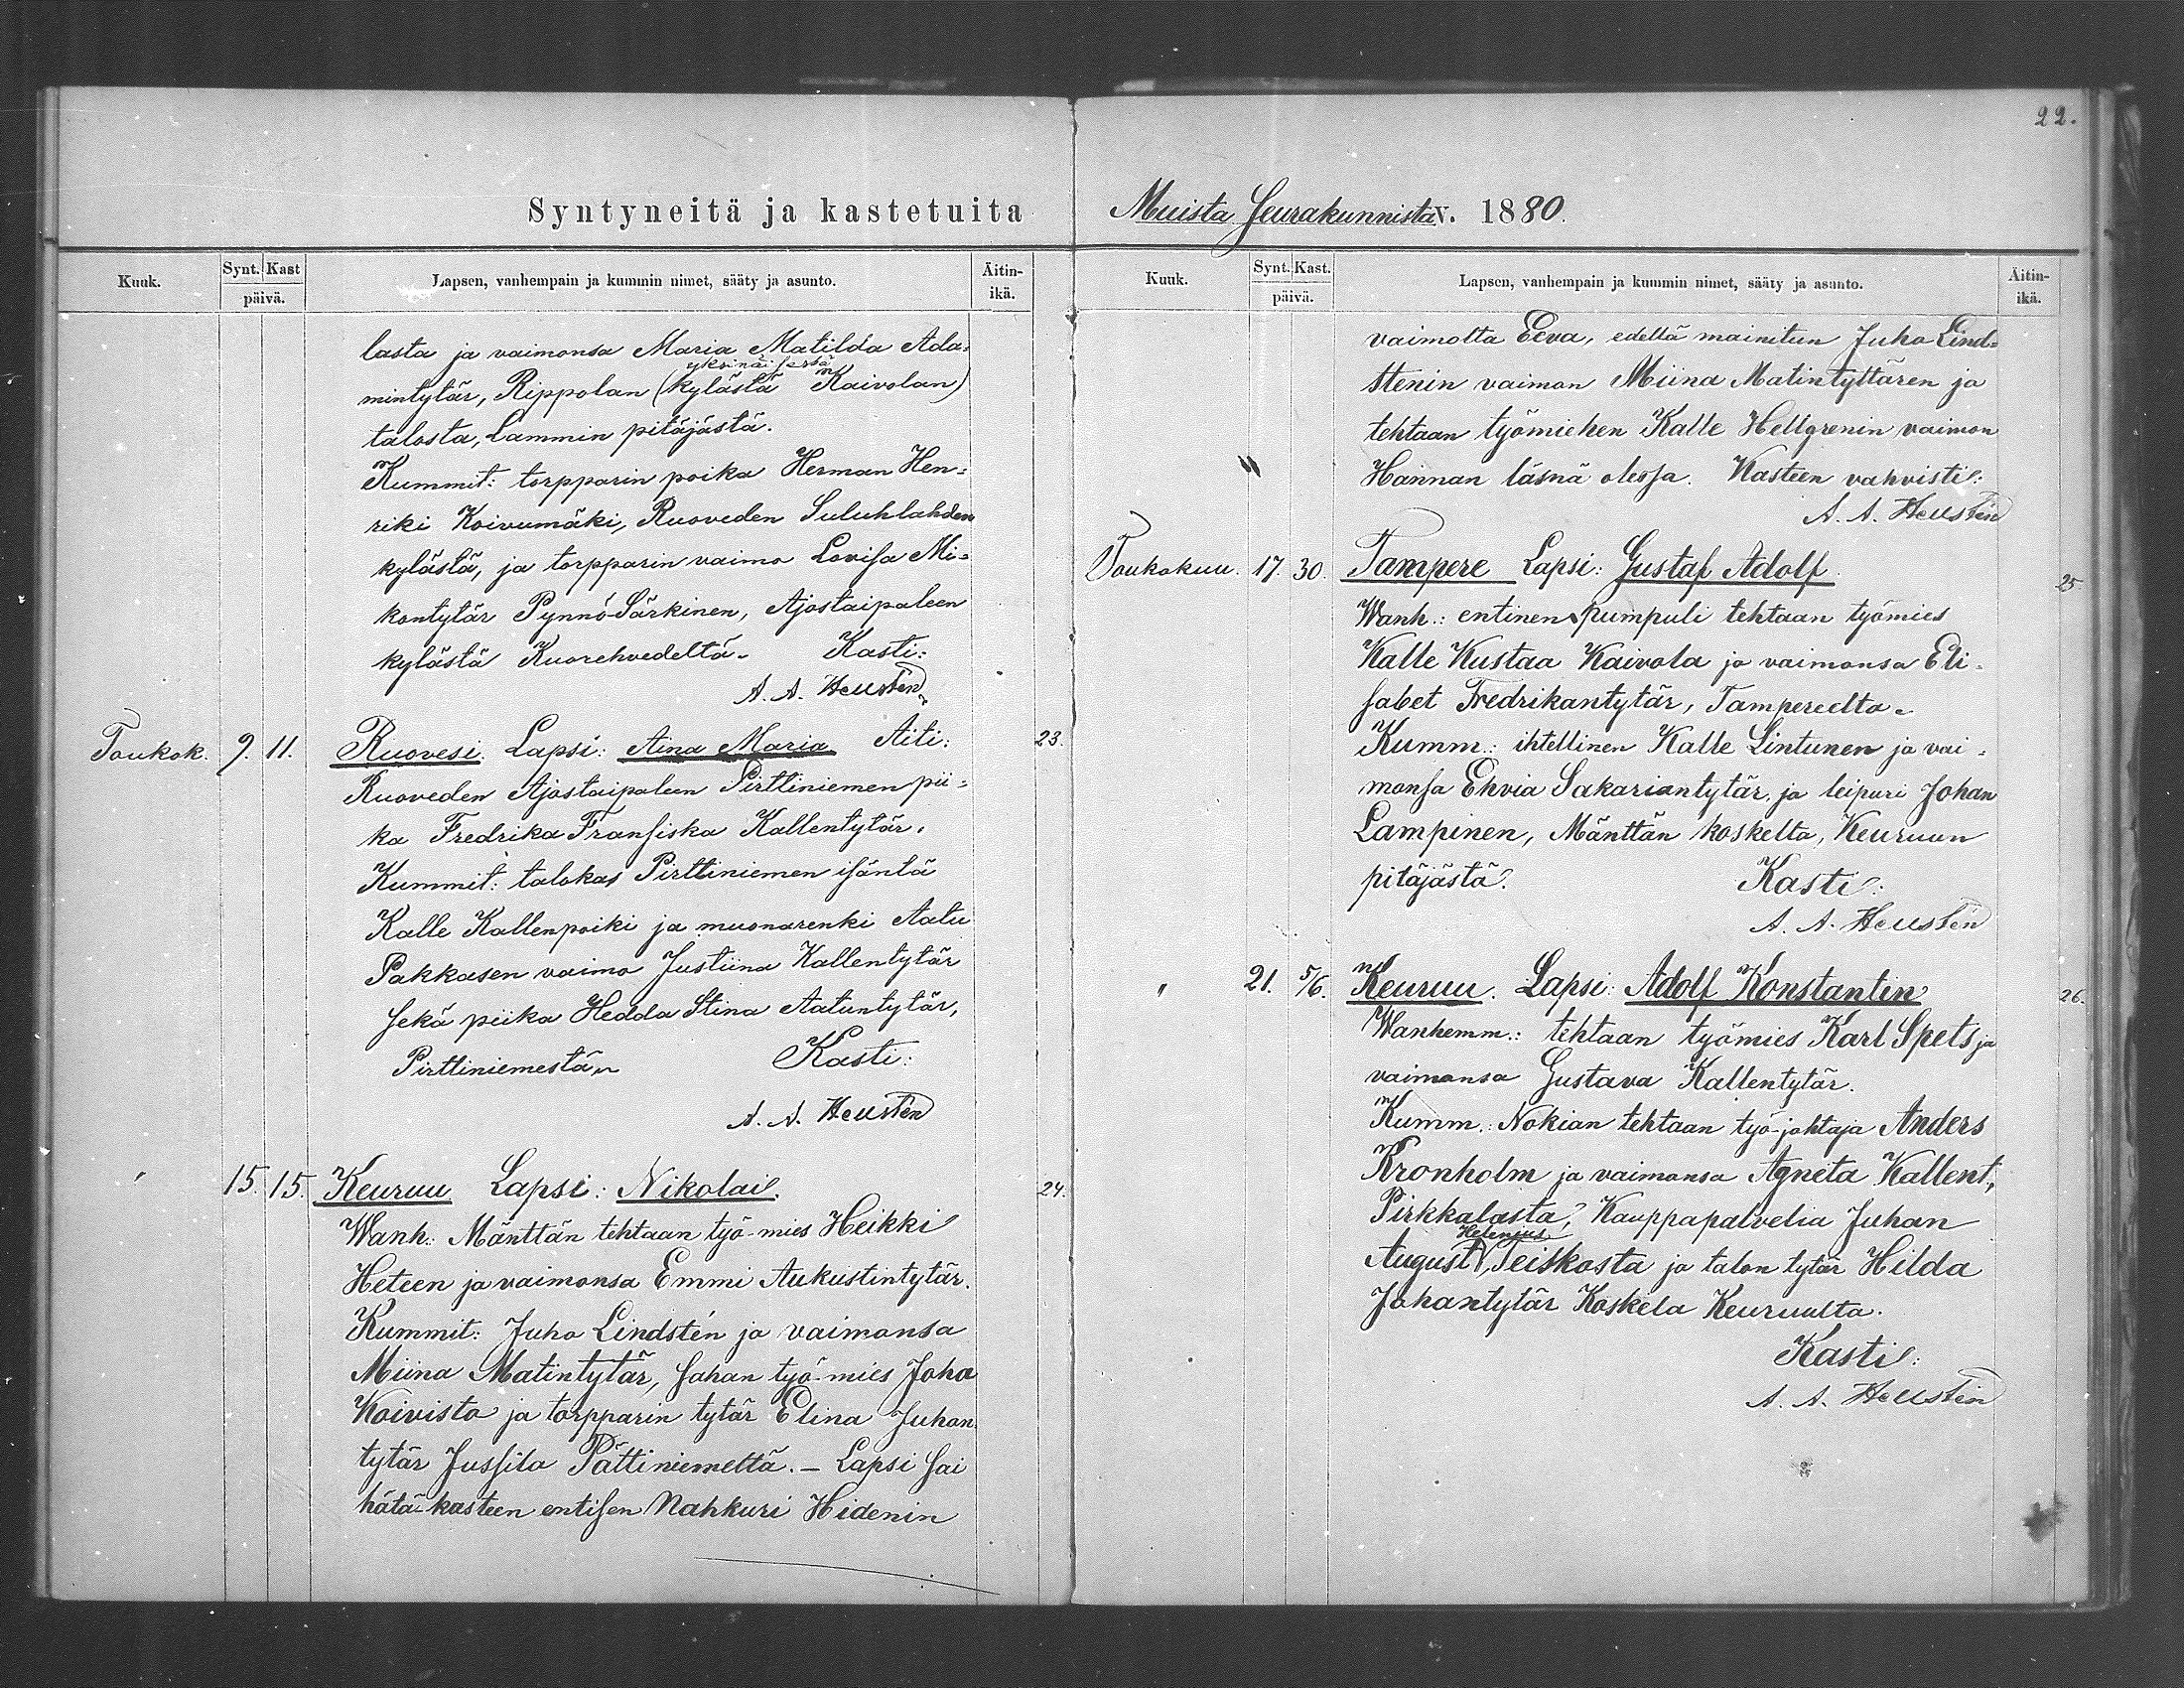 22.
Syntyneitä ja kastetuita Muista Seurakunnista v. 1880.
Kuuk. Synt. Kast päivä. Lapsen, vanhempain ja kummin nimet, sääty ja asunto. Äitin-ikä.
lasta ja vaimonsa Maria Matilda Ada-
yksinäisestä
mintytär, Rippolan (kylästä Kaivolan)
talosta, Lammin pitäjästä.
Kummit: torpparin poika Herman Hen-
riki Koivumäki, Ruoveden Suluhlahden
kylästä, ja torpparin vaimo Lovisa Mi-
kontytär Pynnö-Särkinen, Ajostaipaleen
kylästä Kuorehvedeltä. Kasti:
A. A. Heustén
Toukok. 9. 11. Ruovesi. Lapsi: Aina Maria Äiti: 23.
Ruoveden Ajostaipaleen Pirttiniemen pii-
ka Fredrika Fransiska Kallentytär.
Kummit: talokas Pirttiniemen isäntä
Kalle Kallenpoiki ja muonarenki Aatu
Pakkasen vaimo Justiina Kallentytär
sekä piika Hedda Stina Aatuntytär,
Pirttiniemestä. Kasti:
A. A. Heustén
" 15. 15. Keuruu Lapsi: Nikolai. 24.
Wanh: Mänttän tehtaan työ-mies Heikki
Heteen ja vaimonsa Emmi Aukustintytär.
Kummit: Juho Lindstén ja vaimonsa
Miina Matintytär, sahan työ-mies Joha
Koivisto ja torpparin tytär Elina Juhan
tytär Jussila Pättiniemeltä. – Lapsi sai
hätä-kasteen entisen Nahkuri Hidenin
Kuuk. Synt. Kast. päivä. Lapsen, vanhempain ja kummin nimet, sääty ja asunto. Äitin-ikä.
vaimolta Eeva, edellä mainitun Juho Lind-
stenin vaimon Miina Matintyttären ja
tehtaan työmiehen Kalle Hellgrenin vaimon
" Hannan läsnä olessa. Kasteen vahvisti:
A. A. Heustén
Toukokuu. 17. 30. Tampere Lapsi: Gustaf Adolf. 25.
Wanh.: entinen pumpuli tehtaan työmies
Kalle Kustaa Kaivola ja vaimonsa Eli-
sabet Fredrikantytär, Tampereelta.
Kumm.: ihtellinen Kalle Lintunen ja vai-
monsa Ehvia Sakariantytär, ja leipuri Johan
Lampinen, Mänttän koskelta, Keuruun
pitäjästä. Kasti:
A. A. Heustén
" 21. 5/6. Keuruu. Lapsi: Adolf Konstantin 26.
Wanhemm.: tehtaan työmies Karl Spets ja
vaimonsa Gustava Kallentytär.
Kumm.: Nokian tehtaan työ-johtaja Anders
Kronholm ja vaimonsa Agneta Kallent,
Pirkkalasta, Kauppapalvelia Juhan
Helenius
August, Teiskosta ja talon tytär Hilda
Johantytär Koskela Keuruulta.
Kasti:
A. A. Heustén